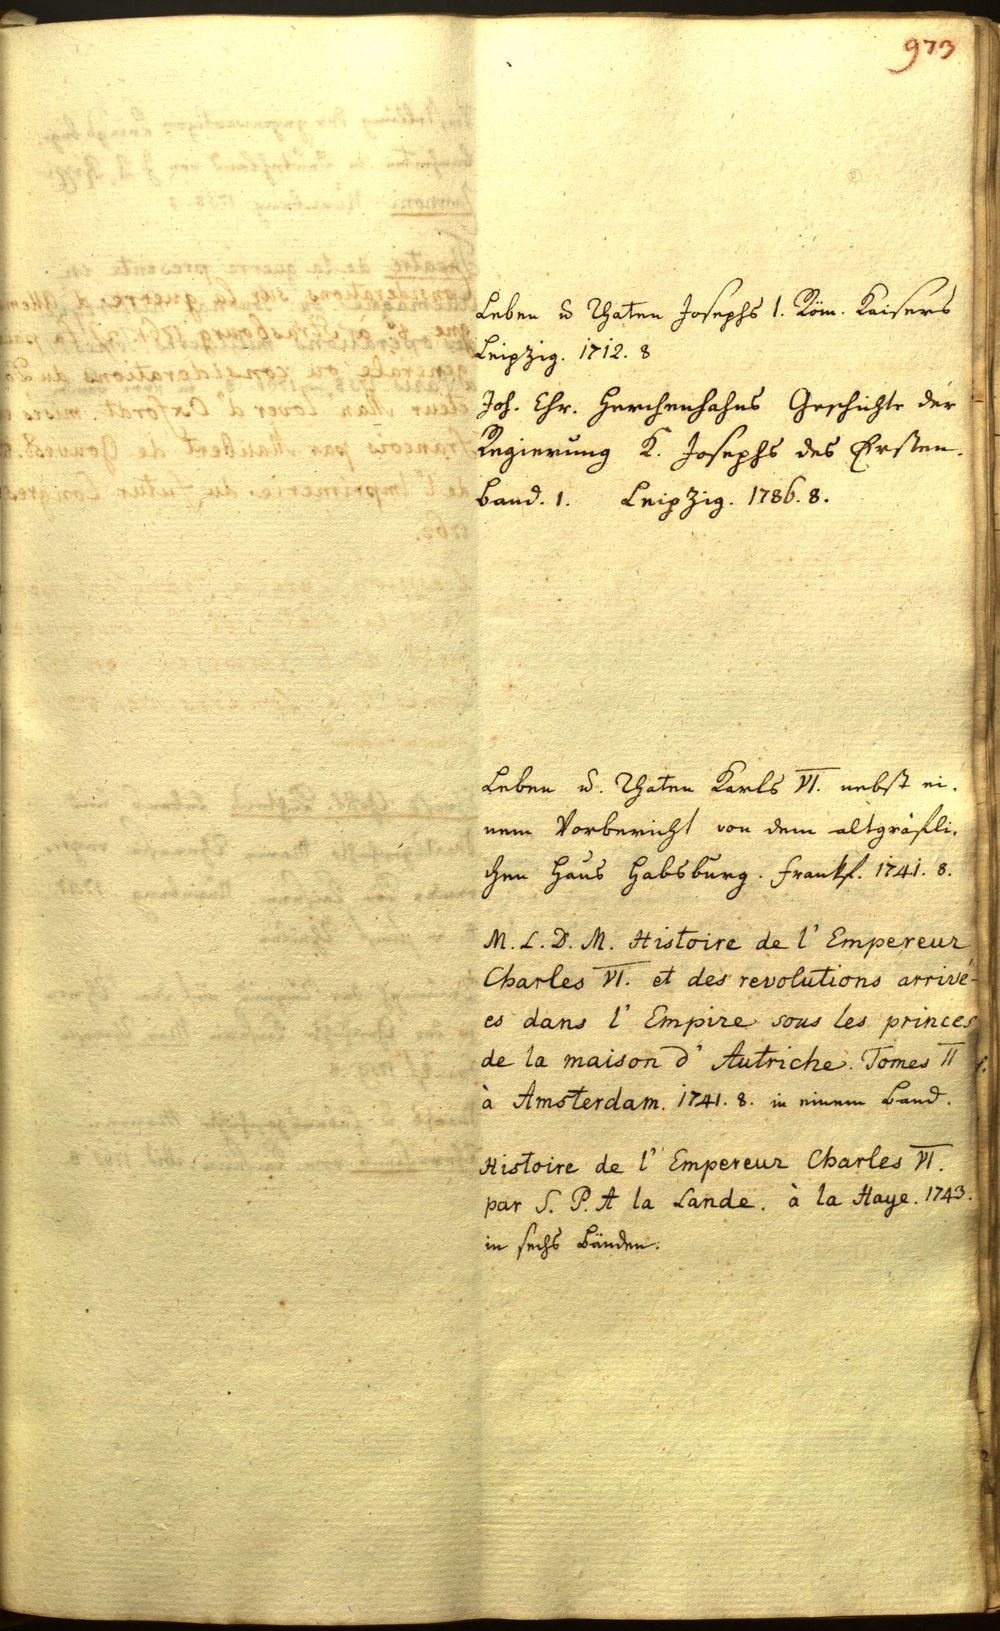 973
Leben u Thaten Josephs 1. Röm. Kaisers
Leipzig. 1712. 8
Joh. Chr. Herchenhahns Geschichte der
Regierung K. Josephs des Ersten.
Band. 1. Leipzig. 1786. 8.
Leben u. Thaten Karls VI. nebst ei.
nem Vorbericht von dem altgräfli.
chen Haus Habsburg. Frankf. 1741. 8.
M. L. D. M. Histoire de l' Empereur
Charles VI. et des revolutions arrivé-
es dans l' Empire sous les princes
de la maison d' Autriche. Tomes II
à Amsterdam. 1741. 8. in einem Band.
Histoire de l' Empereur Charles VI.
par S. P. A la Lande. à la Haye. 1743.
in sechs Bänden.